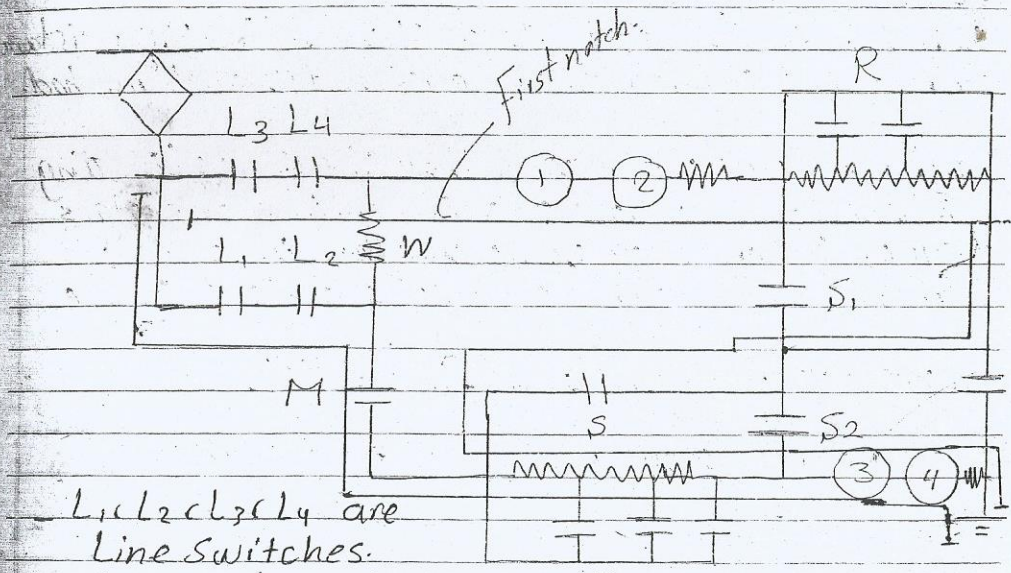 First notch.
R
L3 L4
1
2
L1 L2
W
S1
M
S
S2
3
4
L1, L2, L3, L4 are
Line Switches.